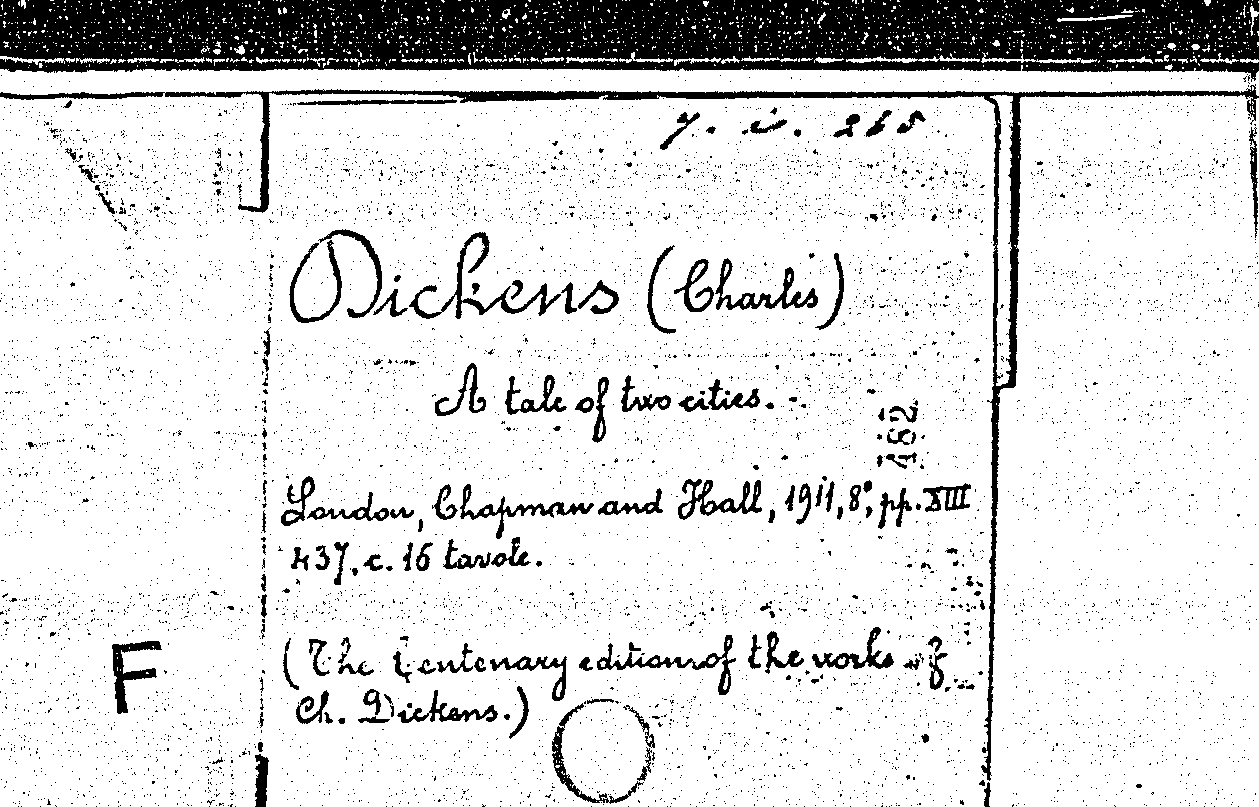 Dickens (Charles)
A tale of two cities. -
London, Chapman and Hall, 1911, 8°, pp. XIII
437, c. 16 tavole.
(The Centenary edition of the works of
Ch. Dickens.)
F